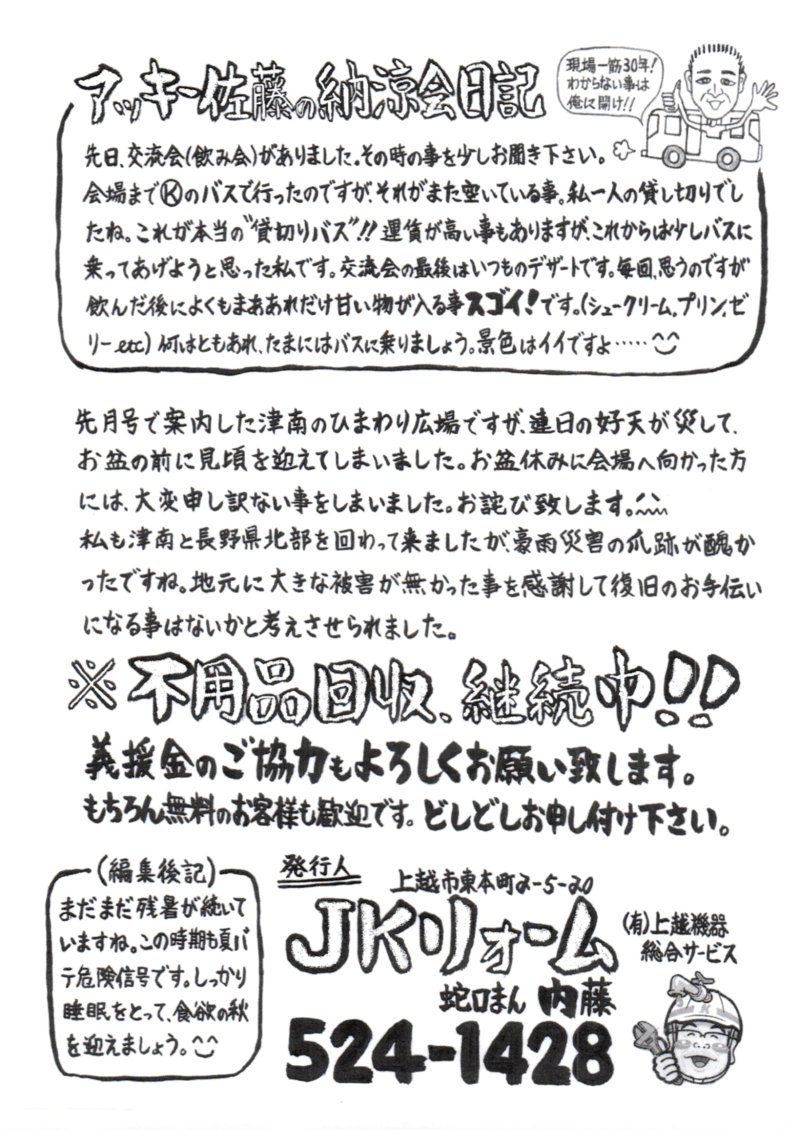 アッキー佐藤の納涼会日記
現場一筋30年！
わからない事は
俺に聞け!!
先日、交流会(飲み会)がありました。その時の事を少しお聞き下さい。
会場までⓀのバスで行ったのですが、それがまた空いている事。私一人の貸し切りでし
たね。これが本当の〝貸切りバス〟!! 運賃が高い事もありますが、これからは少しバスに
乗ってあげようと思った私です。交流会の最後はいつものデザートです。毎回、思うのですが
飲んだ後によくもまああれだけ甘い物が入る事スゴイ！です。(シュークリーム、プリン、ゼ
リーetc) 何はともあれ、たまにはバスに乗りましょう。景色はイイですよ……
先月号で案内した津南のひまわり広場ですが、連日の好天が災して、
お盆の前に見頃を迎えてしまいました。お盆休みに会場へ向かった方
には、大変申し訳ない事をしまいました。お詫び致します。
私も津南と長野県北部を回わって来ましたが、豪雨災害の爪跡が醜か
ったですね。地元に大きな被害が無かった事を感謝して復旧のお手伝い
になる事はないかと考えさせられました。
※不用品回収、継続中!!
義援金のご協力もよろしくお願い致します。
もちろん無料のお客様も歓迎です。どしどしお申し付け下さい。
(編集後記)
まだまだ残暑が続いて
いますね。この時期も夏バ
テ危険信号です。しっかり
睡眠をとって、食欲の秋
を迎えましょう。
発行人
上越市東本町2-5-20
JKリォーム
(有)上越機器
総合サービス
蛇口まん 内藤
524-1428
JK